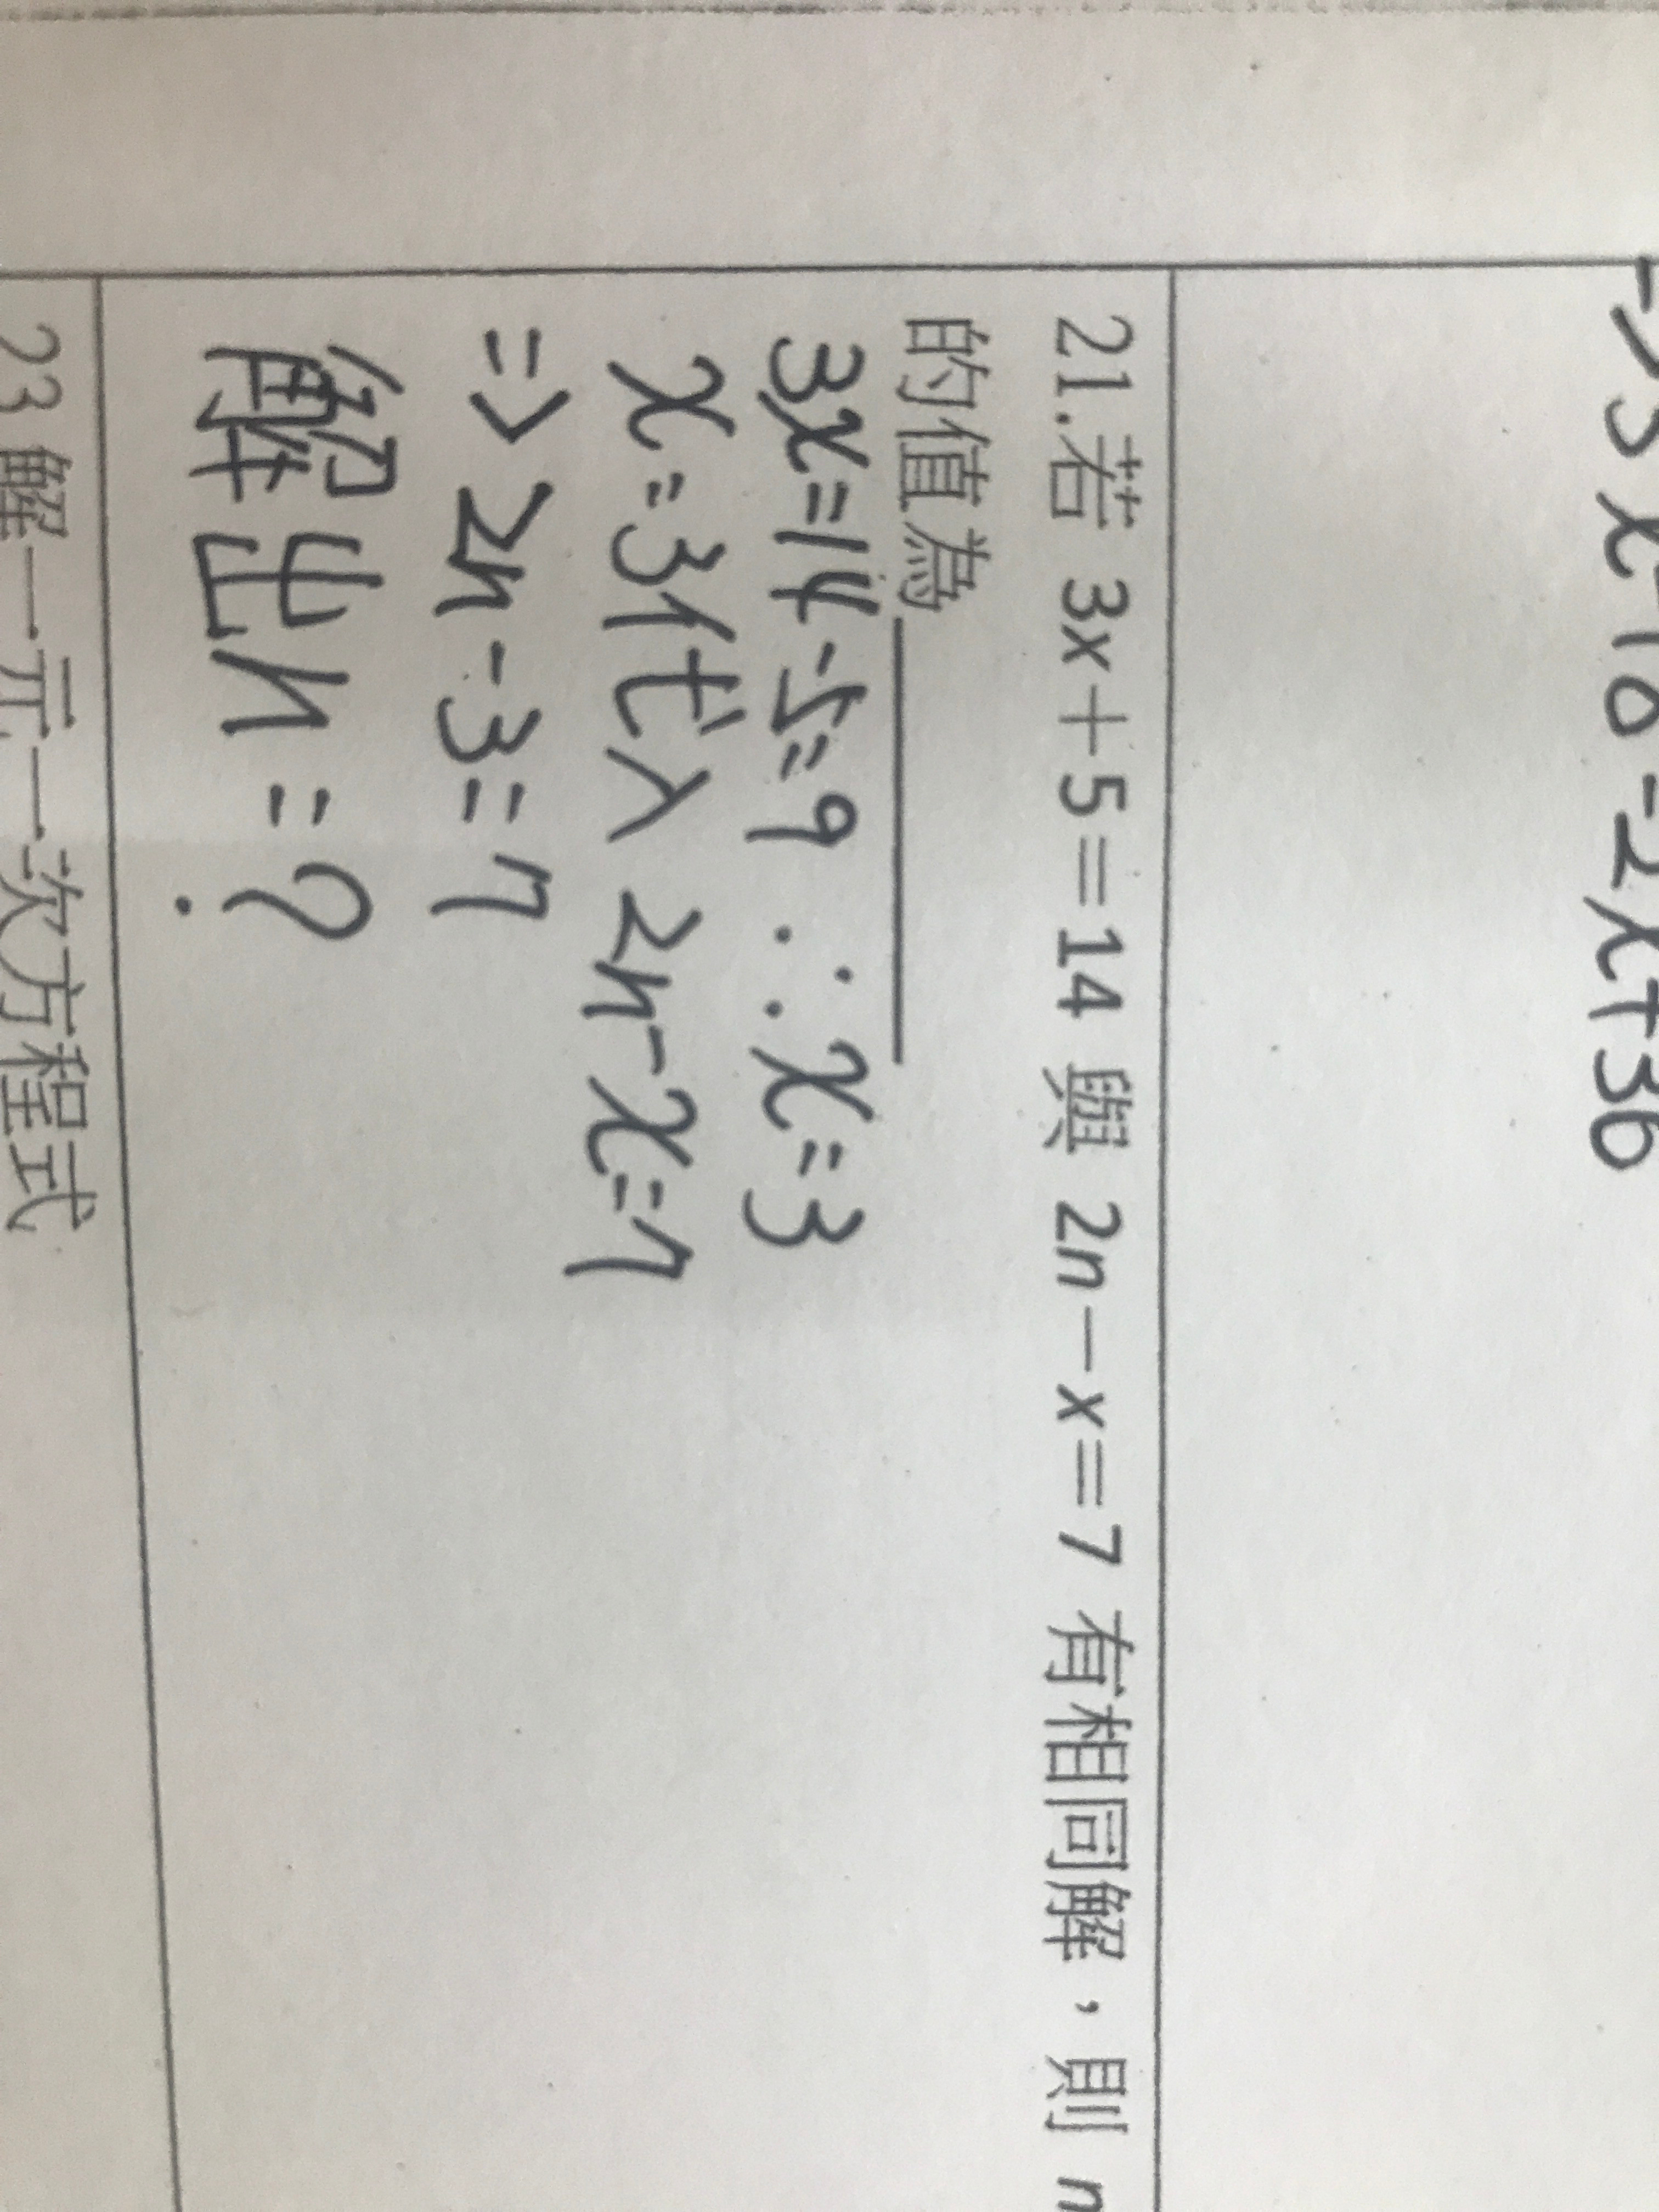 -5x-18=2x+36
21.若 3x＋5＝14 與 2n－x＝7 有相同解，則 n
的值為
3x=14-5=9 ∴x=3
x=3代入 2n-x=7
=> 2n-3=7
解出n=?
23 解一元一次方程式